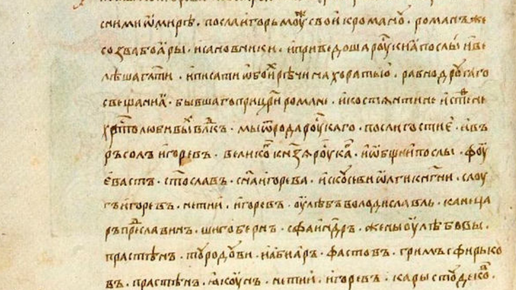 сними ѡмирѣ · посла игорь моужѣ свои к романоу · романъ же
созва боѧры · и сановники · и приведоша роускиꙗ послы · и ве
лѣша глати · и писати ѡбоихъ рѣчи на хоратью · равно дроугаго
свещаниꙗ · бывшаго при цри романе · и костѧнтине · и стефане
хрⷭтолюбивыⷯ влⷣкъ · мы ѿ рода роускаго · посли и гостиє · ивъ
ръ солъ игоревъ · великоⷢ кнѧзѧ роускаⷢ · и ѡбщии посли · воу
евастъ · стославль · сна игорева · искоусеви ѡлги кнѧгини · слоу
ды игоревъ · нетии · игоревъ · оулѣбъ володиславль · каница
ръ преславинъ · шигобернъ · сфаиндръ · жены оулѣбовы ·
прастѣнъ · тоурдоуви · либиаръ · фастовъ · гримъ сфирько
въ · прастѣнъ · ꙗкоунъ · нетии · игоревъ · кары стоудеков